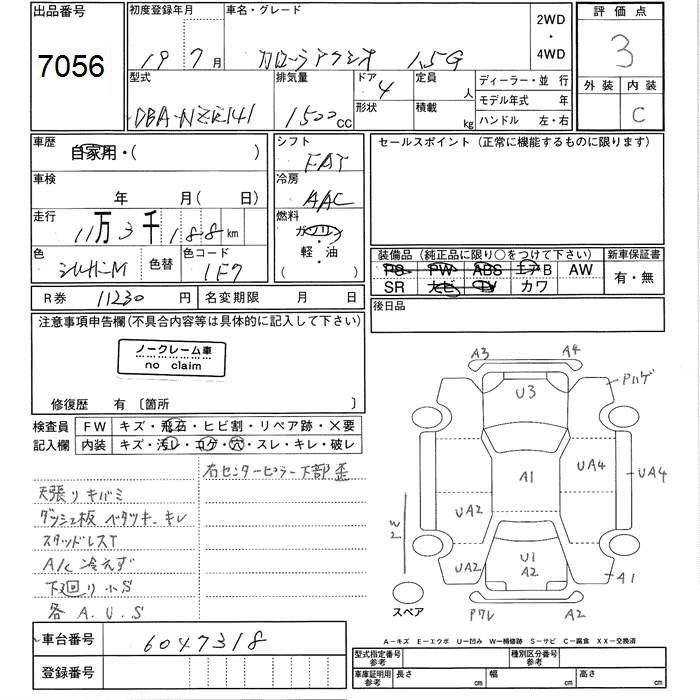 出品番号
7056
初度登録年月
19 7月
車名・グレード
カローラアクシオ 1.5G
2WD
・
4WD
評価点
3
外装 内装
C
型式
DBA-NZE141
排気量
1500cc
ドア
4
形状
定員
人
積載
kg
ディーラー・並 行
モデル年式 年
ハンドル 左・右
車歴
自家用・( )
車検
年 月(日)
走行
11万3千188km
色
シルバーM
色替
色コード
1F7
シフト
FAT
冷房
AAC
燃料
ガソリン
軽・油
( )
セールスポイント(正常に機能するものに限ります)
装備品(純正品に限り○をつけて下さい)
PS PW ABS エアB AW
SR ナビ TV カワ
新車保証書
有・無
R券 11230円
名変期限 月 日
後日品
注意事項申告欄(不具合内容等は具体的に記入して下さい)
ノークレーム車
no claim
修復歴 有〔箇所 〕
検査員
記入欄
FW キズ・飛石・ヒビ割・リペア跡・X要
内装 キズ・汚レ・コゲ・穴・スレ・キレ・破レ
右センターピラー下部歪
天張りキバミ
ダッシュ板 ベタツキ.キレ
スタッドレスT
A/C冷えず
下廻り小S
各A.U.S
A3 A4
Pハゲ
U3
A1
UA4
UA4
UA2
UA2
U1
A2
A1
Pワレ
A2
スペア
A-キズ E-エクボ U-凹み W-補修跡 S-サビ C-腐食 XX-交換済
車台番号
6047318
登録番号
型式指定番号
参考
種別区分番号
参考
車庫証明用
参考
長さ cm
幅 cm
高さ cm